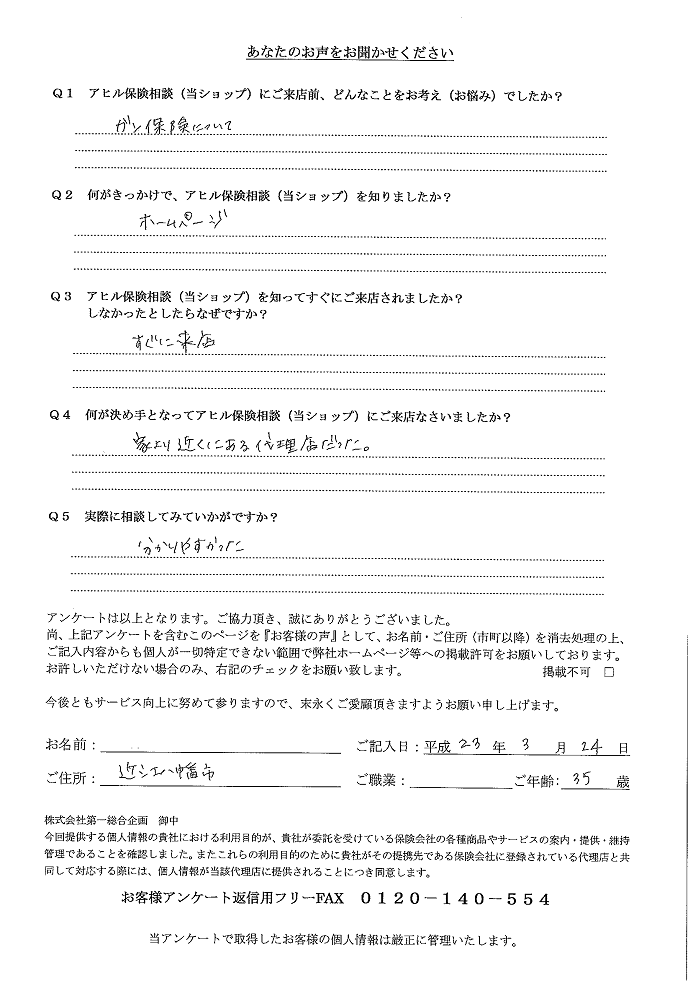 あなたのお声をお聞かせください
Q1 アヒル保険相談（当ショップ）にご来店前、どんなことをお考え（お悩み）でしたか？
ガン保険について
Q2 何がきっかけで、アヒル保険相談（当ショップ）を知りましたか？
ホームページ
Q3 アヒル保険相談（当ショップ）を知ってすぐにご来店されましたか？
しなかったとしたらなぜですか？
すぐに来店
Q4 何が決め手となってアヒル保険相談（当ショップ）にご来店なさいましたか？
家より近くにある代理店だった。
Q5 実際に相談してみていかがですか？
分かりやすかった
アンケートは以上となります。ご協力頂き、誠にありがとうございました。
尚、上記アンケートを含むこのページを『お客様の声』として、お名前・ご住所（市町以降）を消去処理の上、
ご記入内容からも個人が一切特定できない範囲で弊社ホームページ等への掲載許可をお願いしております。
お許しいただけない場合のみ、右記のチェックをお願い致します。 掲載不可 □
今後ともサービス向上に努めて参りますので、末永くご愛顧頂きますようお願い申し上げます。
お名前： ご記入日：平成 23 年 3 月 24 日
ご住所： 近江八幡市 ご職業： ご年齢： 35 歳
株式会社第一総合企画 御中
今回提供する個人情報の貴社における利用目的が、貴社が委託を受けている保険会社の各種商品やサービスの案内・提供・維持
管理であることを確認しました。またこれらの利用目的のために貴社がその提携先である保険会社に登録されている代理店と共
同して対応する際には、個人情報が当該代理店に提供されることにつき同意します。
お客様アンケート返信用フリーFAX 0120－140－554
当アンケートで取得したお客様の個人情報は厳正に管理いたします。